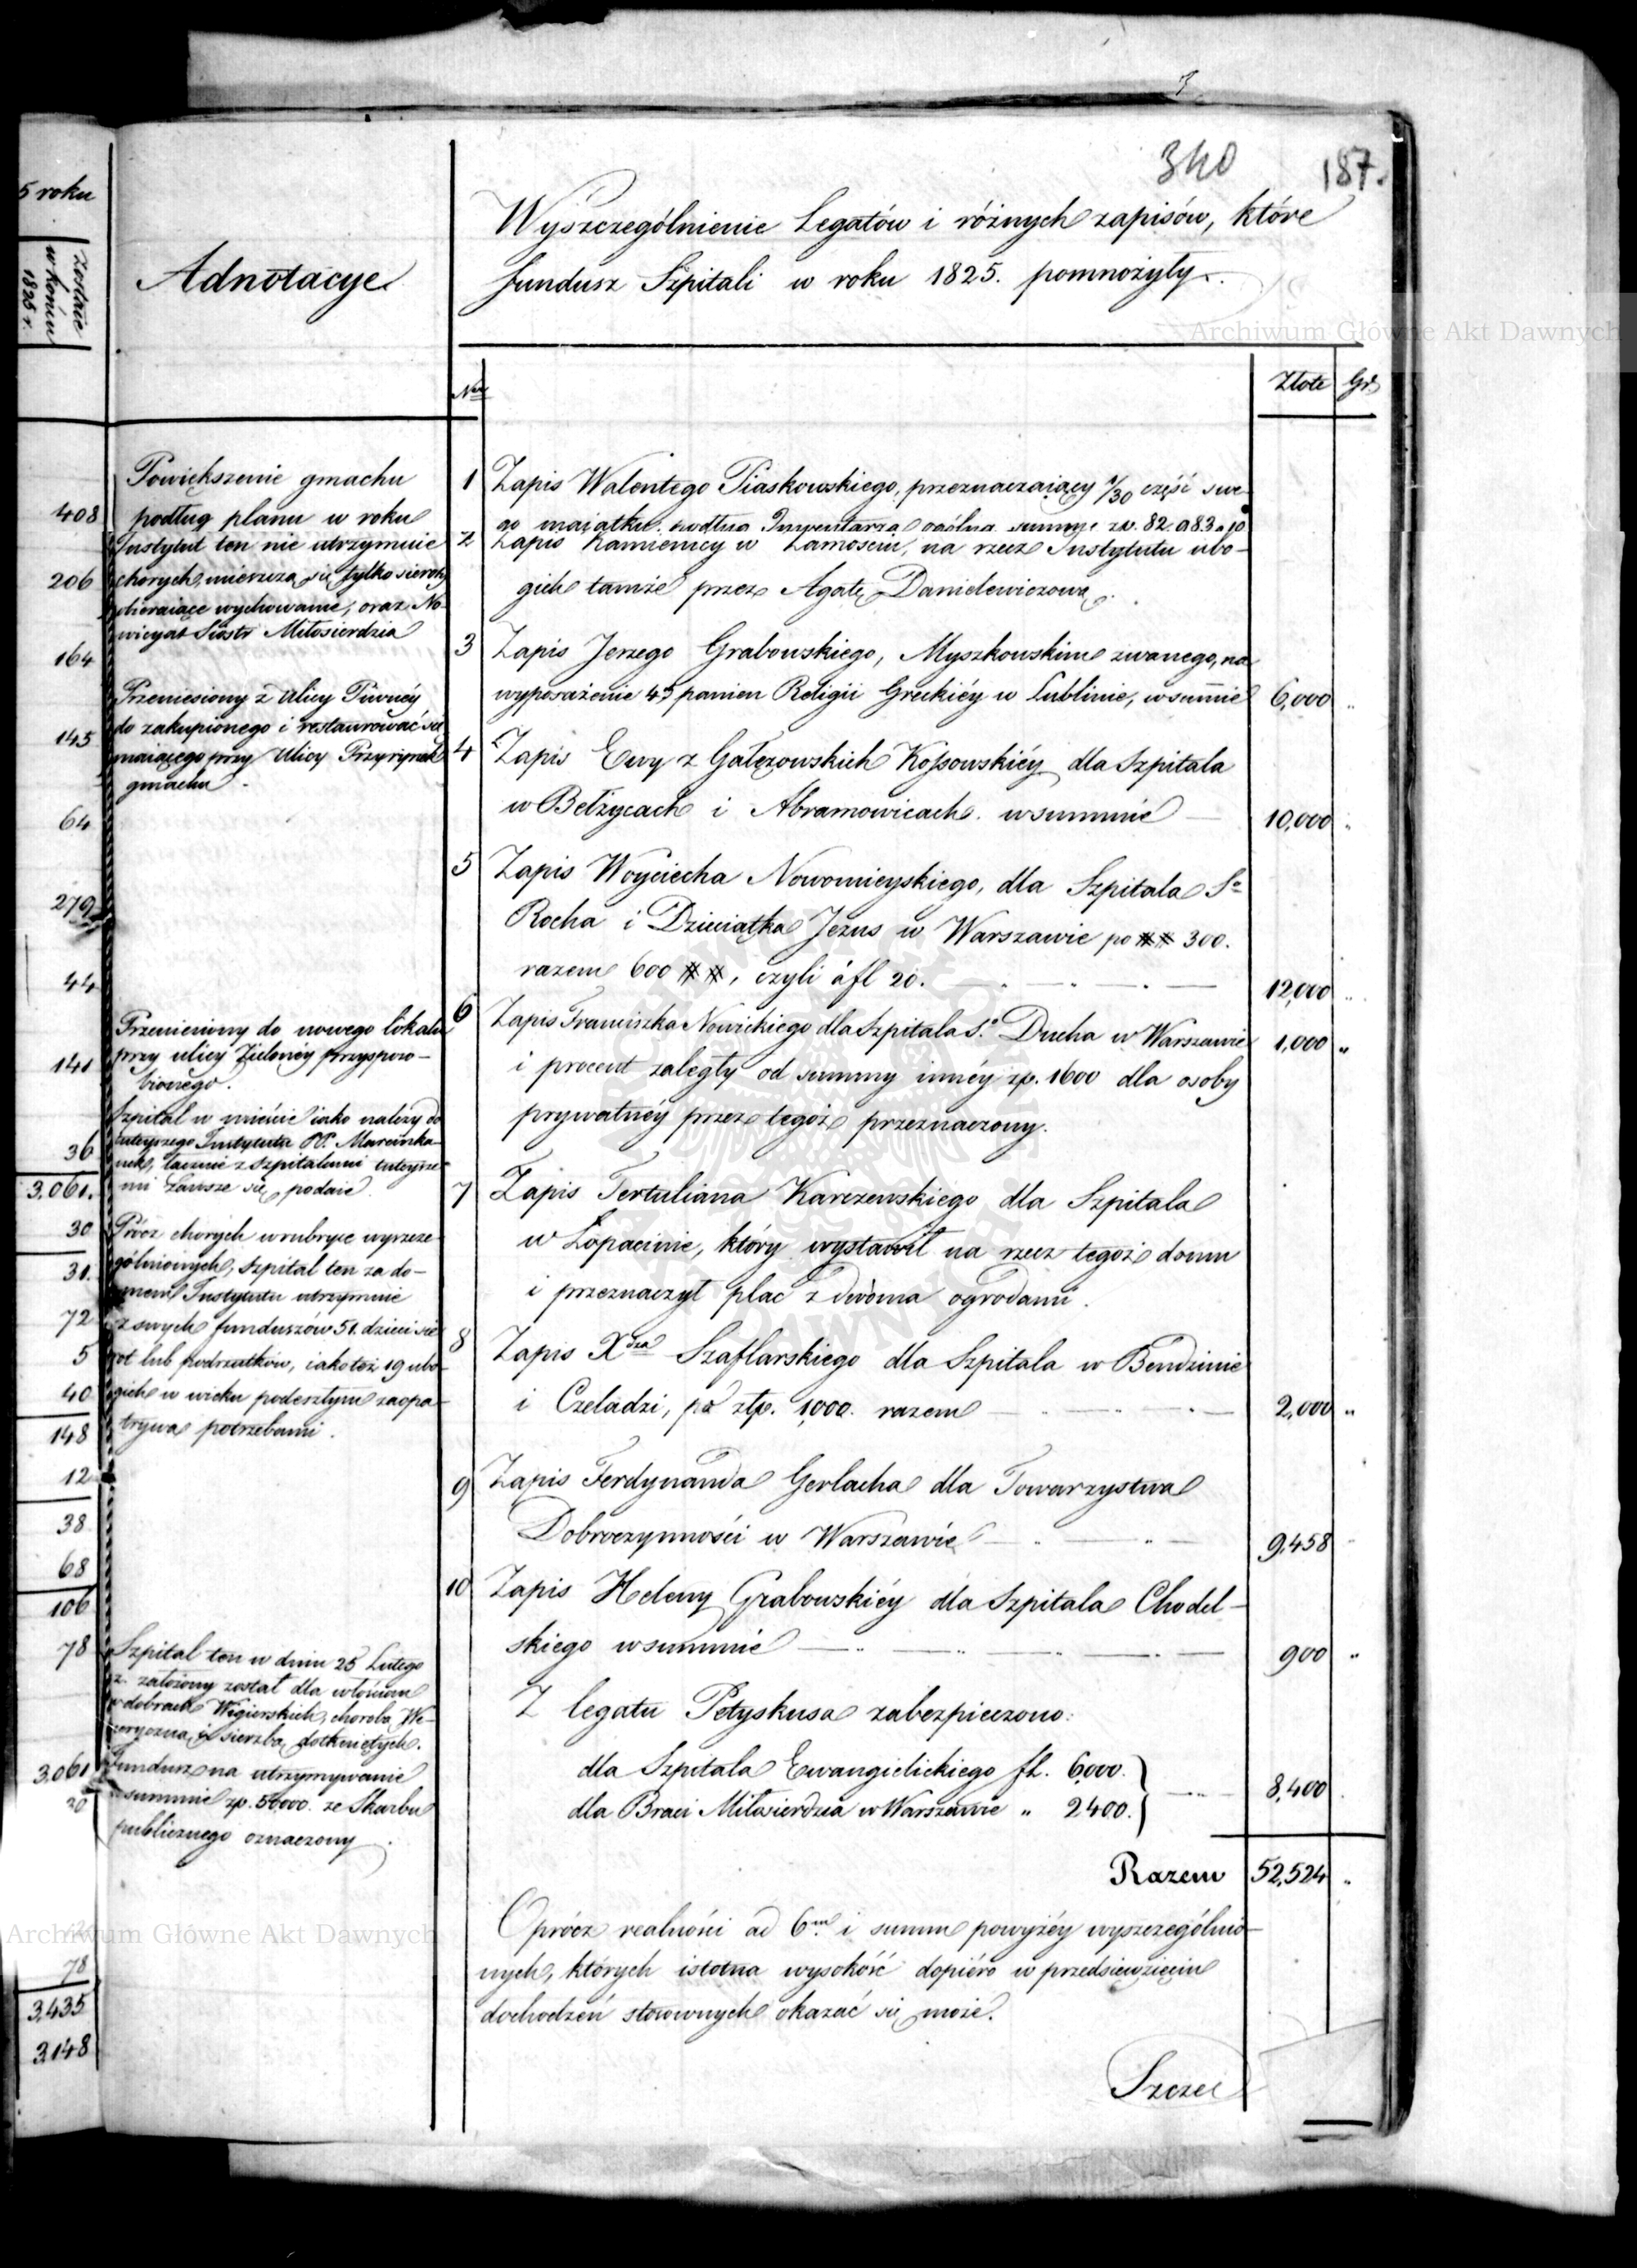 340
187.
5 roku
zostaie
w końcu
1825 r.
408
206
164
145
64
279
44
141
36
3,061.
30
31.
72
5
40
148
12
38
68
106
78
3,061
30
78
3,435
3,148
Adnotacye
Powiększenie gmachu
podług planu w roku
Instytut ten nie utrzymuie
chorych, mieszczą się tylko sieroty
pobieraiące wychowanie, oraz No-
wicyat Siostr Miłosierdzia
Przeniesiony z Ulicy Piwnéy
do zakupionego i restaurować się
maiącego przy Ulicy Przyrynek
gmachu.
Przeniesiony do nowego lokalu
przy ulicy Zielonéy przysposo-
bionego.
Szpital w mieście iako należy do
tuteyszego Instytutu PP. Marcinka-
nek, łącznie z szpitalami tuteysze-
mi zawsze się podaie.
Prócz chorych w rubryce wyszcze-
gólnionych, szpital ten za do-
mem Instytutu utrzymuie
z swych funduszów 51. dzieci sie-
rot lub podrzutków, iakoteż 19 ubo-
gich w wieku podeszłym zaopa-
trywa potrzebami.
Szpital ten w dniu 25 Lutego
założony został dla włościan
w dobrach Węgierskich, chorobą We-
neryczną i świerzbą dotkniętych.
Fundusz na utrzymywanie
w summie zp. 50,000. ze Skarbu
publicznego oznaczony.
Wyszczególnienie Legatów i różnych zapisów, które
fundusz Szpitali w roku 1825. pomnożyły.
Nro
Złote Gr.
1 Zapis Walentego Piaskowskiego, przeznaczaiący 1/30 część swe-
go maiątku, podług Inwentarza ogólna summę zp. 82.083 10
2 Zapis Kamienicy w Zamościu, na rzecz Instytutu ubo-
gich tamże przez Agatę Danielewiczową.
3 Zapis Jerzego Grabowskiego, Myszkowskim zwanego, na
wyposażenie 45 panien Religii Greckiéy w Lublinie, w summie 6,000 "
4 Zapis Ewy z Gałęzowskich Kossowskiéy dla Szpitala
w Bełżycach i Abramowicach. w summie — 10,000 "
5 Zapis Woyciecha Nowomieyskiego, dla Szpitala S°
Rocha i Dzieciątka Jezus w Warszawie po ## 300.
razem 600 ##, czyli à fl 20. 12,000 "
6 Zapis Franciszka Nowickiego dla Szpitala S° Ducha w Warszawie 1,000 "
i procent zaległy od summy innéy zp. 1600 dla osoby
prywatnéy przez tegoż przeznaczony.
7 Zapis Tertuliana Karczewskiego dla Szpitala
w Łopacinie, który wystawił na rzecz tegoż domu
i przeznaczył plac z dwoma ogrodami.
8 Zapis Xdza Szaflarskiego dla Szpitala w Bendzinie
i Czeladzi, po złp. 1,000. razem 2,000 "
9 Zapis Ferdynanda Gerlacha dla Towarzystwa
Dobroczynności w Warszawie 9,458 "
10 Zapis Heleny Grabowskiéy dla Szpitala Chodel-
skiego w summie 900 "
Z legatu Petyskusa zabezpieczono:
dla Szpitala Ewangielickiego fl. 6,000.
dla Braci Miłosierdzia w Warszawie " 2400. 8,400
Razem 52,524 "
Oprócz realności ad 6m i summ powyżéy wyszczególnio-
nych, których istotna wysokość dopiéro w przedsięwzięciu
dochodzeń stosownych okazać się może.
Szcze
Archiwum Główne Akt Dawnych
Archiwum Główne Akt Dawnych